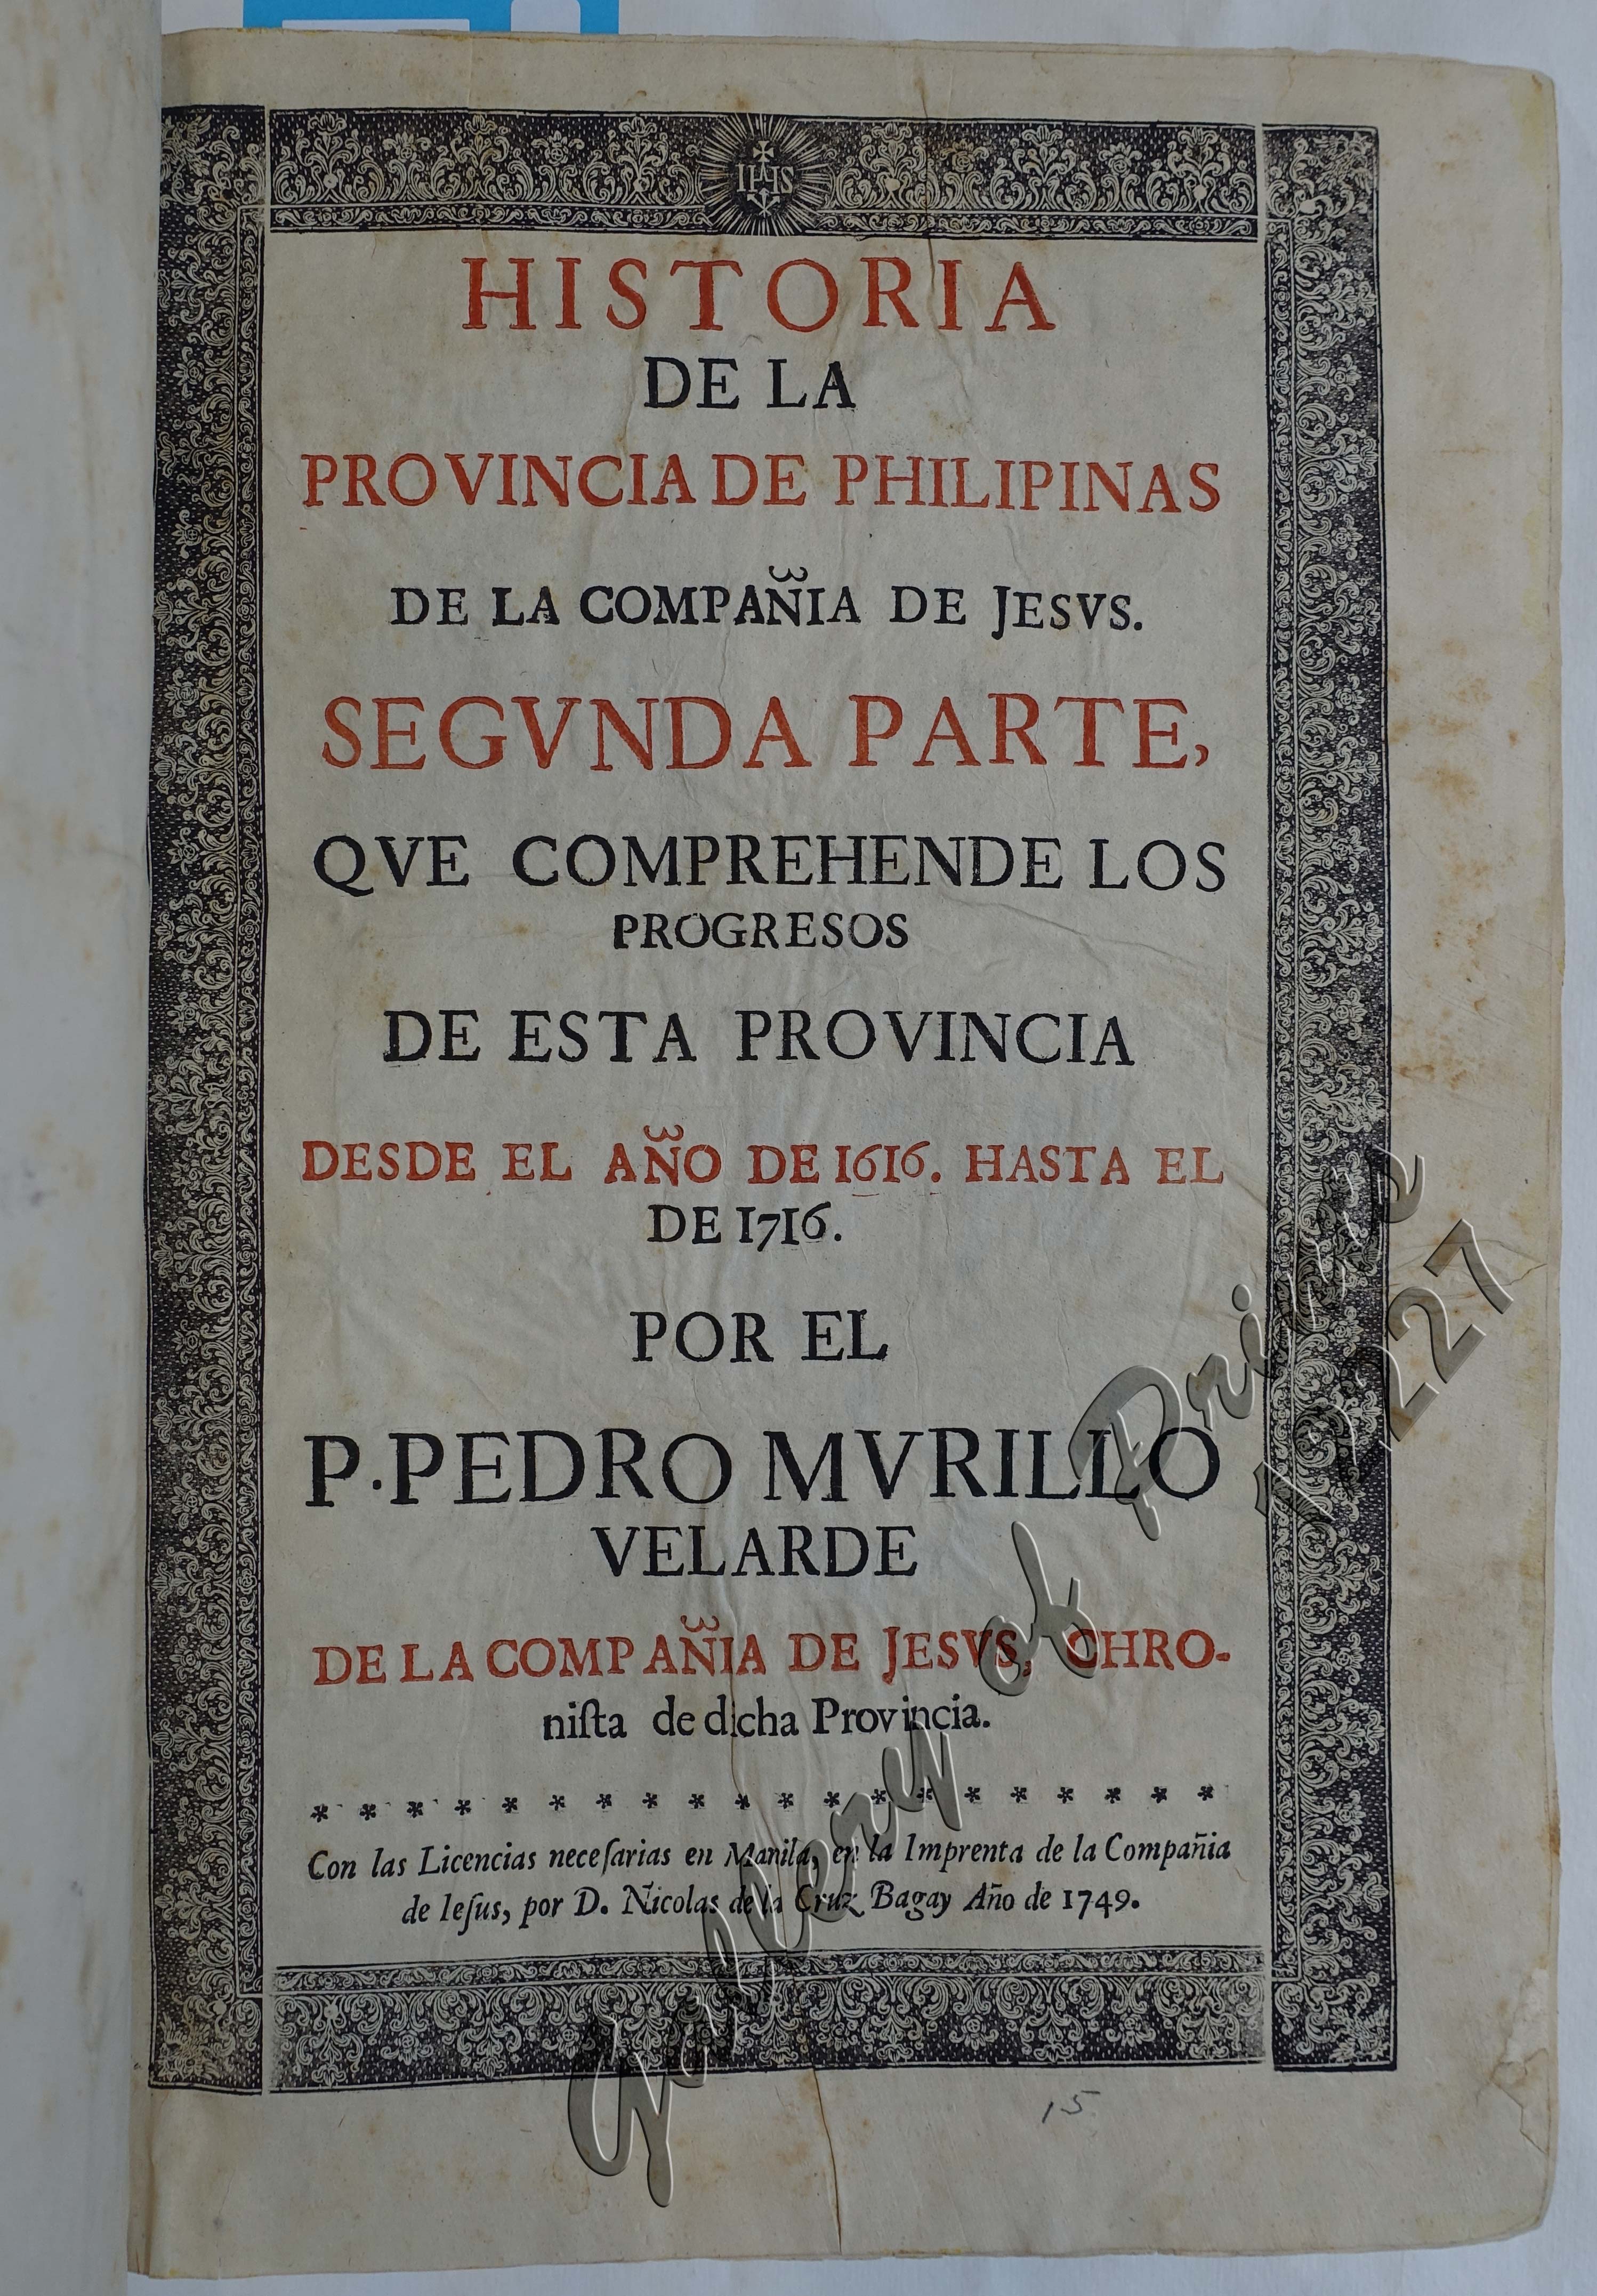 IHS
HISTORIA
DE LA
PROVINCIA DE PHILIPINAS
DE LA COMPAÑIA DE JESVS.
SEGVNDA PARTE,
QVE COMPREHENDE LOS
PROGRESOS
DE ESTA PROVINCIA
DESDE EL AÑO DE 1616. HASTA EL
DE 1716.
POR EL
P. PEDRO MVRILLO
VELARDE
DE LA COMPAÑIA DE JESVS, CHRO-
niſta de dicha Provincia.
* * * * * * * * * * * * * * * * * * * *
Con las Licencias neceſarias en Manila, en la Imprenta de la Compañia
de Ieſus, por D. Nicolas de la Cruz Bagay Año de 1749.
15
Gallery of Prime
1,227